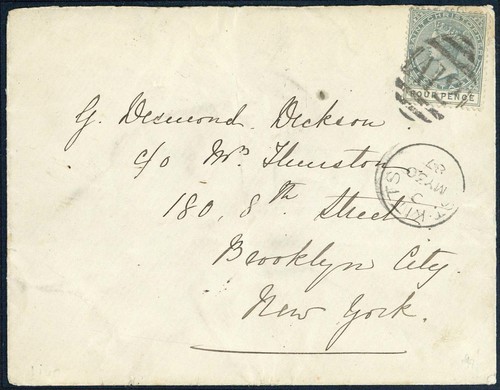 SAINT CHRISTOPHER
FOUR PENCE
G. Desmond Dickson
c/o Mrs Thurston
180, 8th Street
Brooklyn City.
New York.
ST. KITTS
MY 20
87